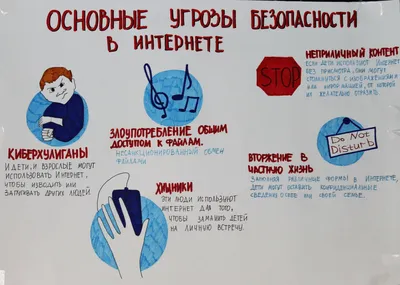 ОСНОВНЫЕ УГРОЗЫ БЕЗОПАСНОСТИ
В ИНТЕРНЕТЕ
НЕПРИЛИЧНЫЙ КОНТЕНТ
ЕСЛИ ДЕТИ ИСПОЛЬЗУЮТ ИНТЕРНЕТ
БЕЗ ПРИСМОТРА, ОНИ МОГУТ
СТОЛКНУТЬСЯ С ИЗОБРАЖЕНИЯМИ
ИЛИ ИНФОРМАЦИЕЙ, ОТ КОТОРОЙ
ИХ ЖЕЛАТЕЛЬНО ОГРАДИТЬ.
STOP
ЗЛОУПОТРЕБЛЕНИЕ ОБЩИМ
ДОСТУПОМ К ФАЙЛАМ.
НЕСАНКЦИОНИРОВАННЫЙ ОБМЕН
ФАЙЛАМИ
Do Not
Disturb
КИБЕРХУЛИГАНЫ
И ДЕТИ, И ВЗРОСЛЫЕ МОГУТ
ИСПОЛЬЗОВАТЬ ИНТЕРНЕТ,
ЧТОБЫ ИЗВОДИТЬ ИЛИ
ЗАПУГИВАТЬ ДРУГИХ ЛЮДЕЙ
ХИЩНИКИ
ЭТИ ЛЮДИ ИСПОЛЬЗУЮТ
ИНТЕРНЕТ ДЛЯ ТОГО,
ЧТОБЫ ЗАМАНИТЬ ДЕТЕЙ
НА ЛИЧНУЮ ВСТРЕЧУ.
ВТОРЖЕНИЕ В
ЧАСТНУЮ ЖИЗНЬ
ЗАПОЛНЯЯ РАЗЛИЧНЫЕ ФОРМЫ В ИНТЕРНЕТЕ,
ДЕТИ МОГУТ ОСТАВИТЬ КОНФИДЕНЦИАЛЬНЫЕ
СВЕДЕНИЯ О СЕБЕ ИЛИ СВОЕЙ СЕМЬЕ.